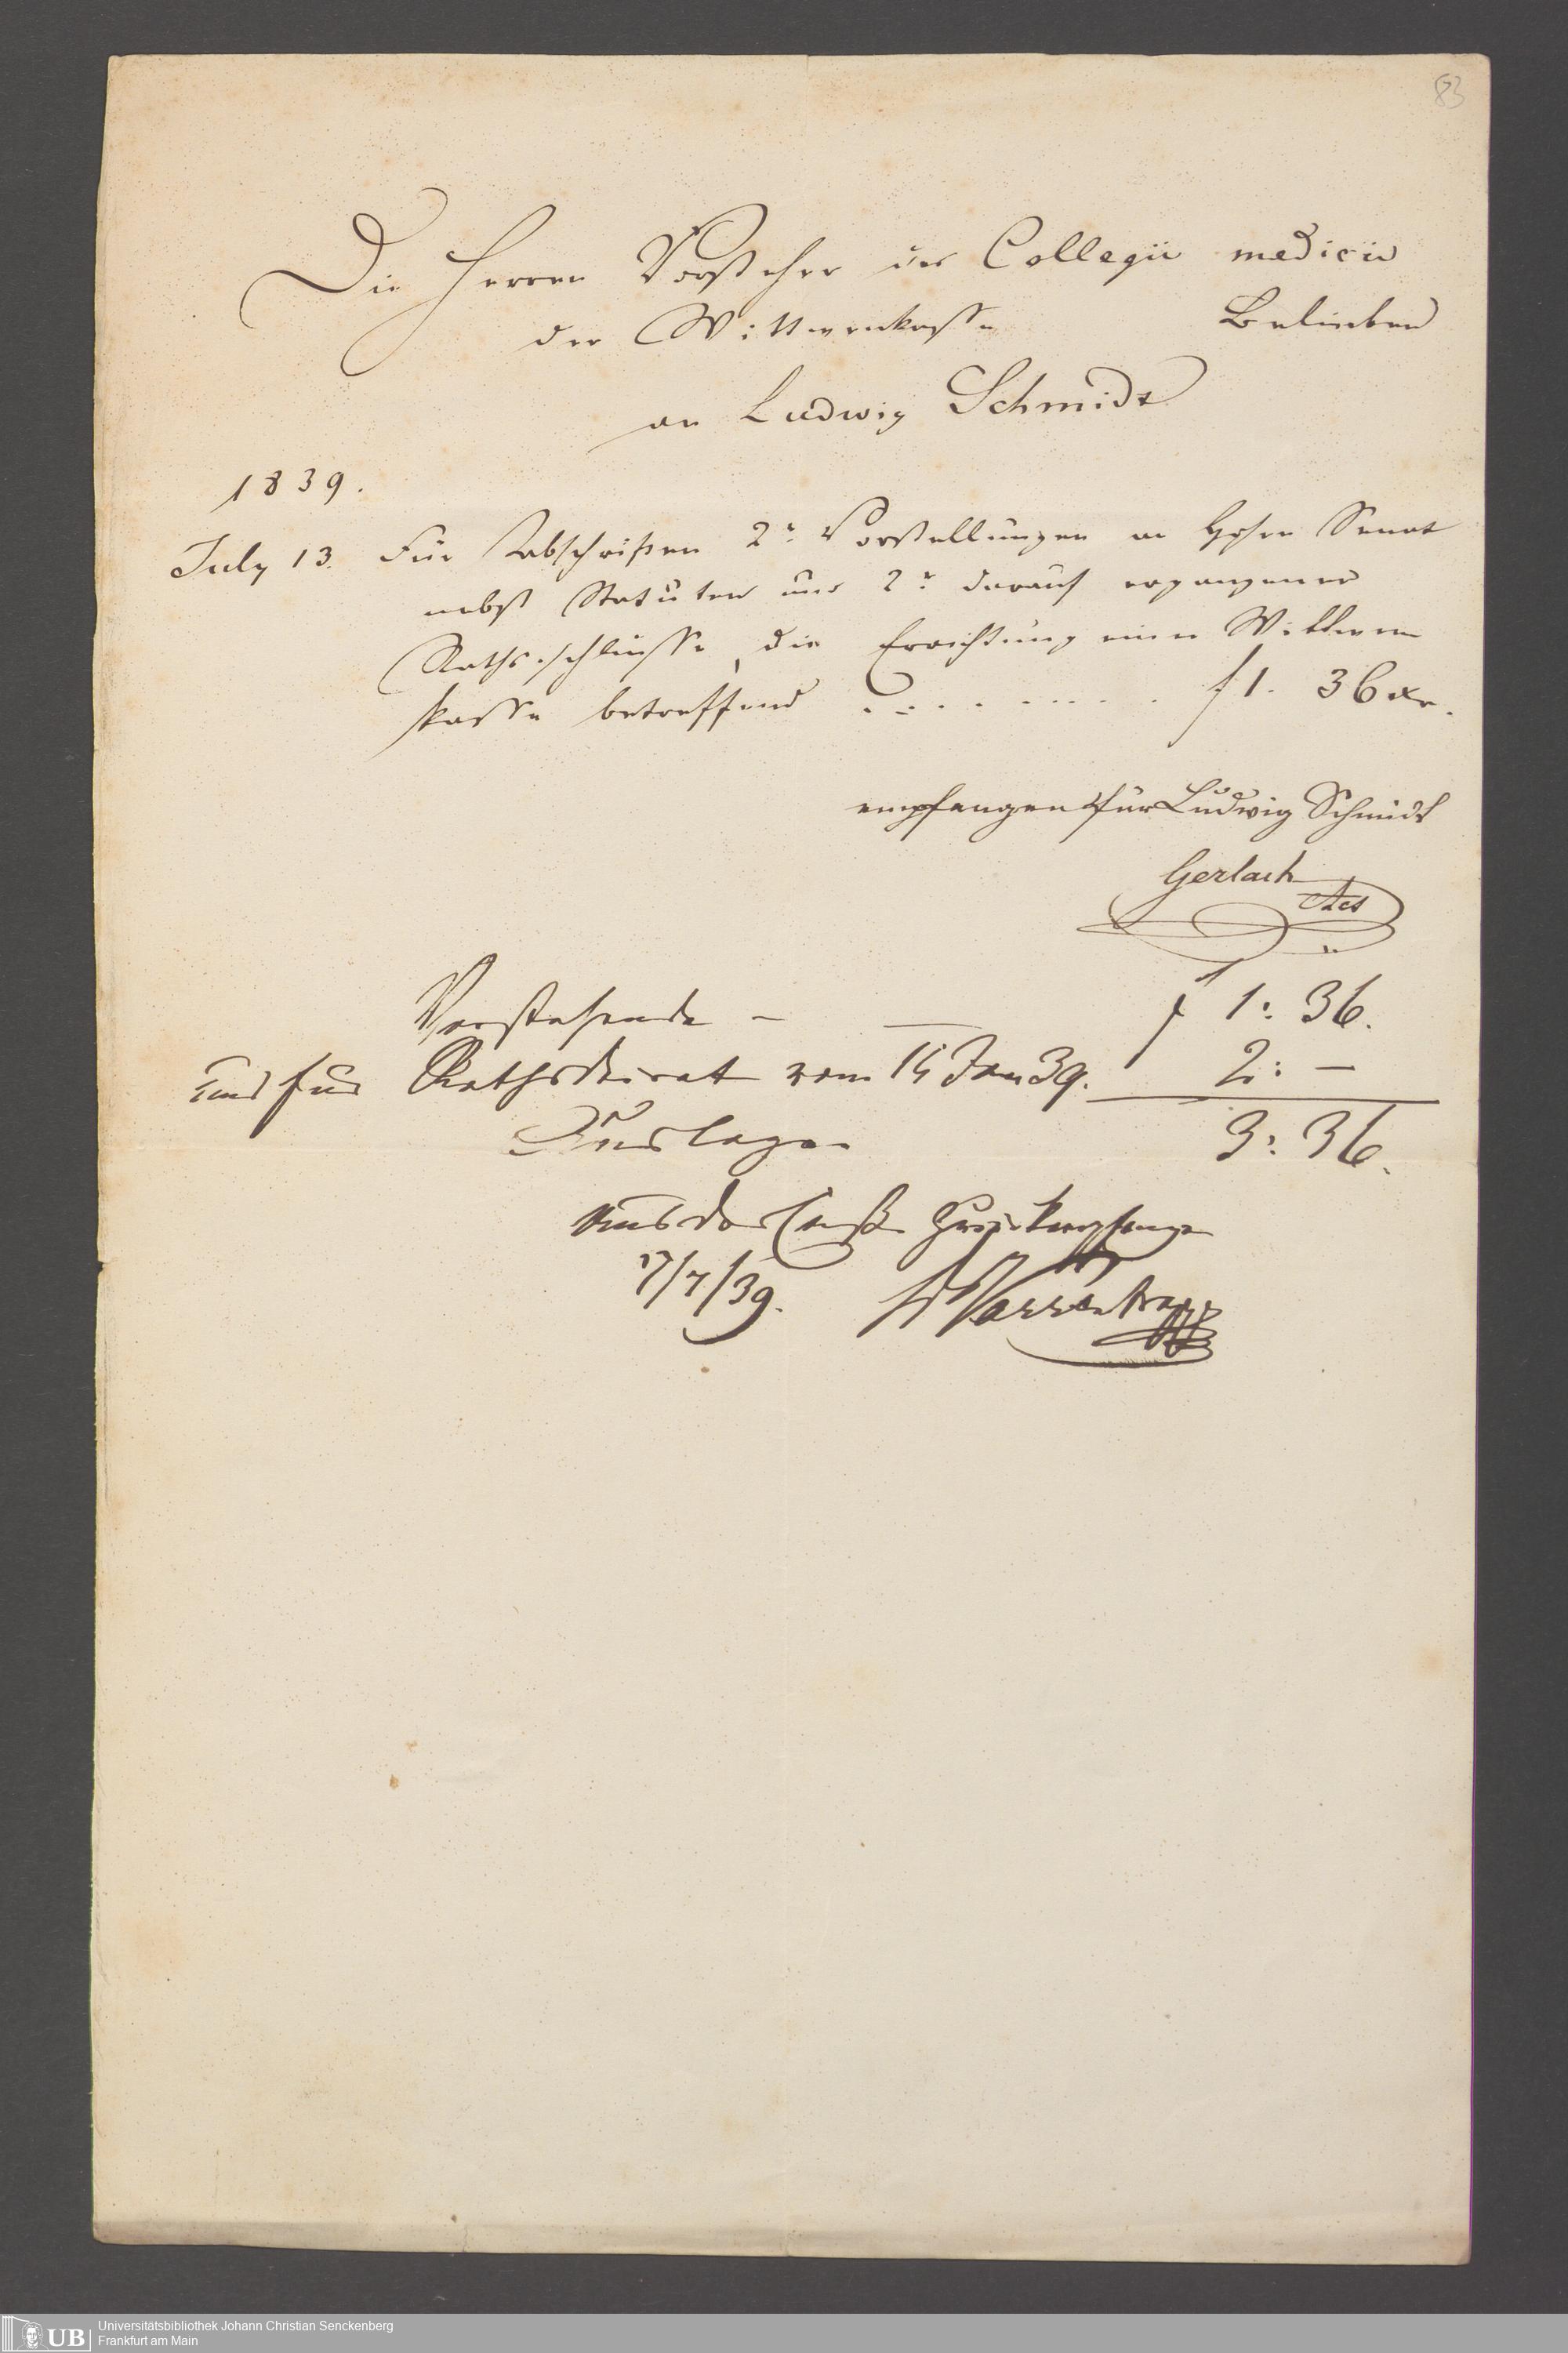 83
Die Herren Vorsteher des Collegii medicii
der Wittwenkasse Belieben
an Ludwig Schmidt
1839.
July 13. Für Abschriften 2r Vorstellungen an Hohen Senat
nebst Statuten und 2r darauf ergangener
Rathsschlüsse, die Errichtung einer Wittwen
kasse betreffend . . . . . . . . . f 1. 36 xr.
empfangen für Ludwig Schmidt
Gerlach
Vorstehende — f 1: 36.
und für Rathsdecret vom 15 Jan 39. 2: —
Auslagen 3: 36.
Aus der Casse zurückempfangen
17/7/39. Dr Varrentrapp
Universitätsbibliothek Johann Christian Senckenberg
UB Frankfurt am Main